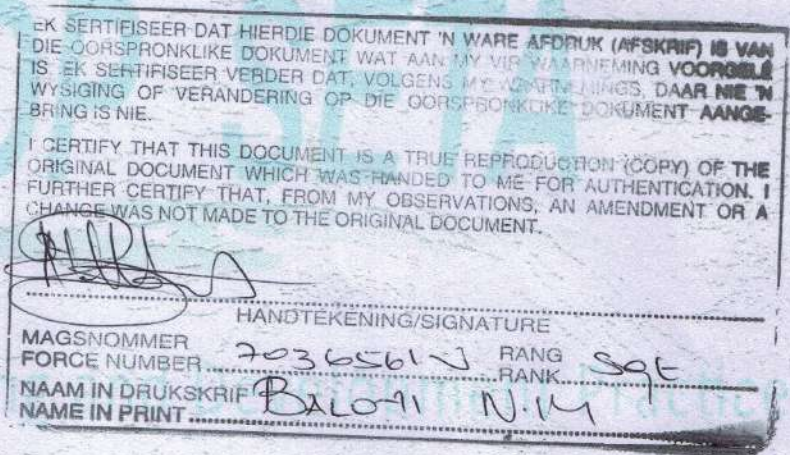 SETA
EK SERTIFISEER DAT HIERDIE DOKUMENT 'N WARE AFDRUK (AFSKRIF) IS VAN
DIE OORSPRONKLIKE DOKUMENT WAT AAN MY VIR WAARNEMING VOORGELÊ
IS. EK SERTIFISEER VERDER DAT, VOLGENS MY WAARNEMINGS, DAAR NIE 'N
WYSIGING OF VERANDERING OP DIE OORSPRONKLIKE DOKUMENT AANGE-
BRING IS NIE.
I CERTIFY THAT THIS DOCUMENT IS A TRUE REPRODUCTION (COPY) OF THE
ORIGINAL DOCUMENT WHICH WAS HANDED TO ME FOR AUTHENTICATION. I
FURTHER CERTIFY THAT, FROM MY OBSERVATIONS, AN AMENDMENT OR A
CHANGE WAS NOT MADE TO THE ORIGINAL DOCUMENT.
HANDTEKENING/SIGNATURE
MAGSNOMMER
FORCE NUMBER 7036561 RANG
RANK Sgt
Development Practice
NAAM IN DRUKSKRIF
NAME IN PRINT BALOYI N.M